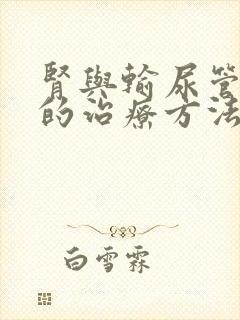 腎與輸尿管
的治療方法
白雪霖